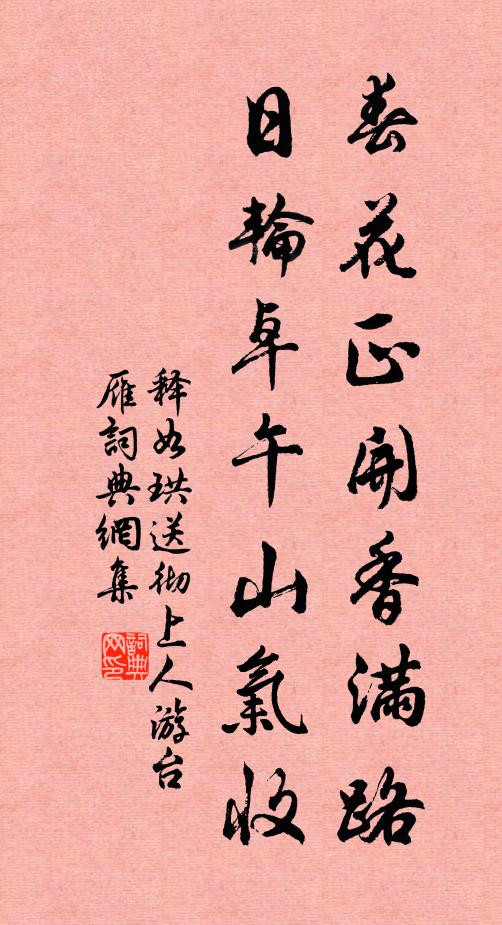 春花正開香滿路
日輪卓午山氣收
釋如珙送彻上人游台
雁詞典網集
詞典
网印